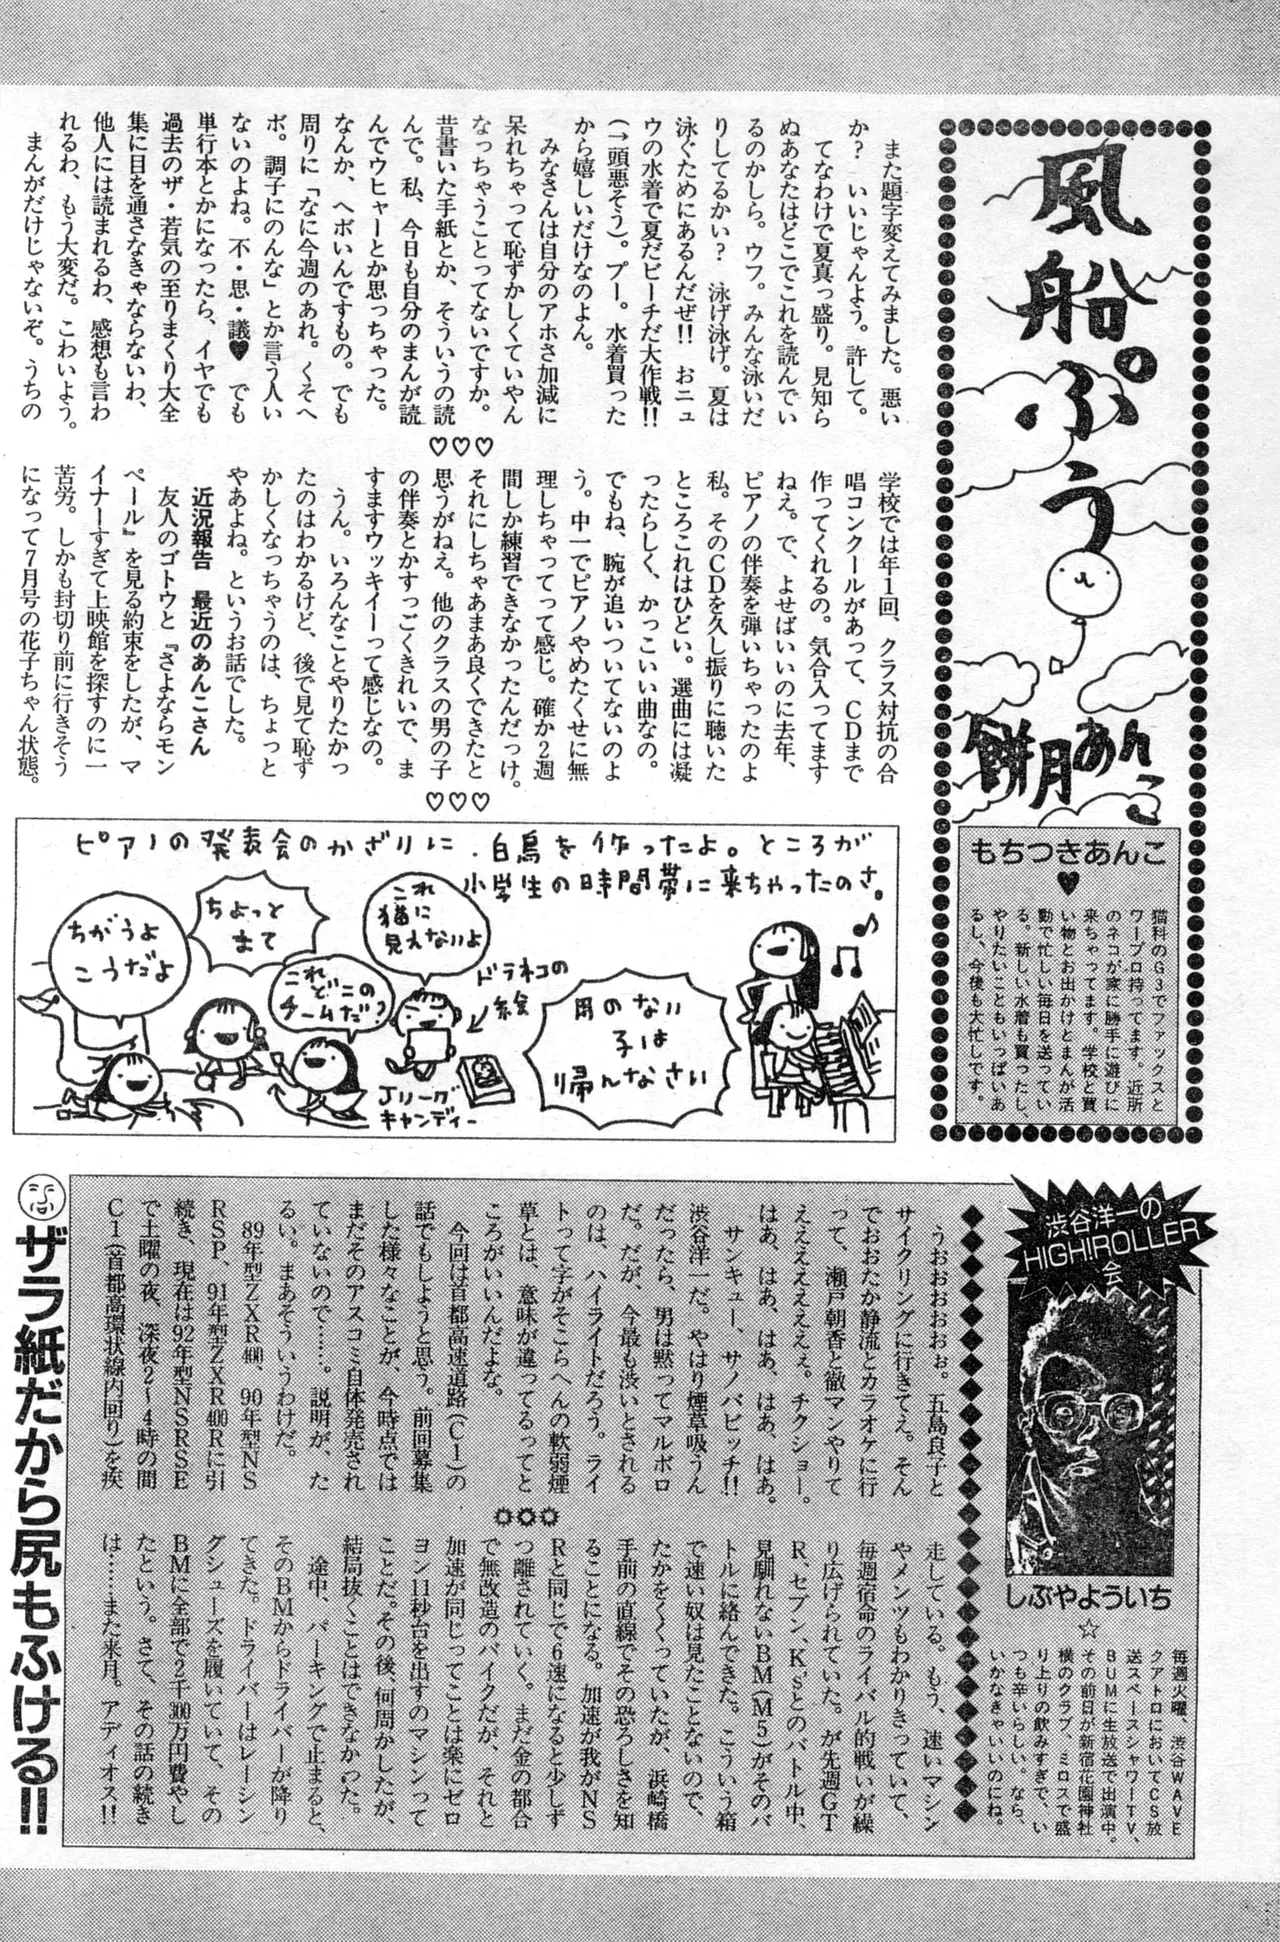 風船ぷう
餅月あんこ
もちつきあんこ
♥
猫科のG3でファックスと
ワープロ持ってます。近所
のネコが家に勝手に遊びに
来ちゃってます。学校と買
い物とお出かけとまんが活
動で忙しい毎日を送ってい
る。新しい水着も買ったし、
やりたいこともいっぱいあ
るし、今後も大忙しです。
また題字変えてみました。悪い
か？いいじゃんよう。許して。
てなわけで夏真っ盛り。見知ら
ぬあなたはどこでこれを読んでい
るのかしら。ウフ。みんな泳いだ
りしてるかい？泳げ泳げ。夏は
泳ぐためにあるんだぜ!!おニュ
ウの水着で夏だビーチだ大作戦!!
(→頭悪そう)。プー。水着買った
から嬉しいだけなのよん。
みなさんは自分のアホさ加減に
呆れちゃって恥ずかしくていやん
なっちゃうことってないですか。
昔書いた手紙とか、そういうの読
んで。私、今日も自分のまんが読
んでウヒャーとか思っちゃった。
なんか、ヘボいんですもの。でも
周りに「なに今週のあれ。くそヘ
ボ。調子にのんな」とか言う人い
ないのよね。不・思・議♥でも
単行本とかになったら、イヤでも
過去のザ・若気の至りまくり大全
集に目を通さなきゃならないわ、
他人には読まれるわ、感想も言わ
れるわ、もう大変だ。こわいよう。
まんがだけじゃないぞ。うちの
♡♡♡
学校では年1回、クラス対抗の合
唱コンクールがあって、CDまで
作ってくれるの。気合入ってます
ねえ。で、よせばいいのに去年、
ピアノの伴奏を弾いちゃったのよ
私。そのCDを久し振りに聴いた
ところこれはひどい。選曲には凝
ったらしく、かっこいい曲なの。
でもね、腕が追いついてないのよ
う。中一でピアノやめたくせに無
理しちゃってって感じ。確か2週
間しか練習できなかったんだっけ。
それにしちゃあまあ良くできたと
思うがねえ。他のクラスの男の子
の伴奏とかすっごくきれいで、ま
すますウッキイーって感じなの。
うん。いろんなことやりたかっ
たのはわかるけど、後で見て恥ず
かしくなっちゃうのは、ちょっと
やあよね。というお話でした。
近況報告　最近のあんこさん
友人のゴトウと『さよならモン
ペール』を見る約束をしたが、マ
イナーすぎて上映館を探すのに一
苦労。しかも封切り前に行きそう
になって7月号の花子ちゃん状態。
♡♡♡
ピアノの発表会のかざりに、白鳥を作ったよ。ところが
小学生の時間帯に来ちゃったのさ。
用のない
子は
帰んなさい
ドラネコの
絵
これ
猫に
見えないよ
これ
どこの
チームだ？
Jリーグ
キャンディー
ちょっと
まて
ちがうよ
こうだよ
渋谷洋一の
HIGH!ROLLER
会
しぶやよういち
☆
毎週火曜、渋谷WAVE
クアトロにおいてCS放
送スペースシャワーTV、
BUMに生放送で出演中。
その前日が新宿花園神社
横のクラブ、ミロスで盛
り上りの飲みすぎで、い
つも辛いらしい。なら、
いかなきゃいいのにね。
うおおおおおぉ。五島良子と
サイクリングに行きてえ。そん
でおおたか静流とカラオケに行
って、瀬戸朝香と徹マンやりて
ええええええええぇ。チクショー。
はあ、はあ、はあ、はあ、はあ。
サンキュー、サノバビッチ!!
渋谷洋一だ。やはり煙草吸うん
だったら、男は黙ってマルボロ
だ。だが、今最も渋いとされる
のは、ハイライトだろう。ライ
トって字がそこらへんの軟弱煙
草とは、意味が違ってるってと
ころがいいんだよな。
今回は首都高速道路(C1)の
話でもしようと思う。前回募集
した様々なことが、今時点では
まだそのアスコミ自体発売され
ていないので……。説明が、た
るい。まあそういうわけだ。
89年型ZXR400、90年型NS
RSP、91年型ZXR400Rに引
続き、現在は92年型NSRSE
で土曜の夜、深夜2〜4時の間
C1(首都高環状線内回り)を疾
走している。もう、速いマシン
やメンツもわかりきっていて、
毎週宿命のライバル的戦いが繰
り広げられていた。が先週GT
R、セブン、K'sとのバトル中、
見馴れないBM(M5)がそのバ
トルに絡んできた。こういう箱
で速い奴は見たことないので、
たかをくくっていたが、浜崎橋
手前の直線でその恐ろしさを知
ることになる。加速が我がNS
Rと同じで6速になると少しず
つ離されていく。まだ金の都合
で無改造のバイクだが、それと
加速が同じってことは楽にゼロ
ヨン11秒台を出すのマシンって
ことだ。その後、何周かしたが、
結局抜くことはできなかった。
途中、パーキングで止まると、
そのBMからドライバーが降り
てきた。ドライバーはレーシン
グシューズを履いていて、その
BMに全部で2千300万円費やし
たという。さて、その話の続き
は……また来月。アディオス!!
ザラ紙だから尻もふける!!